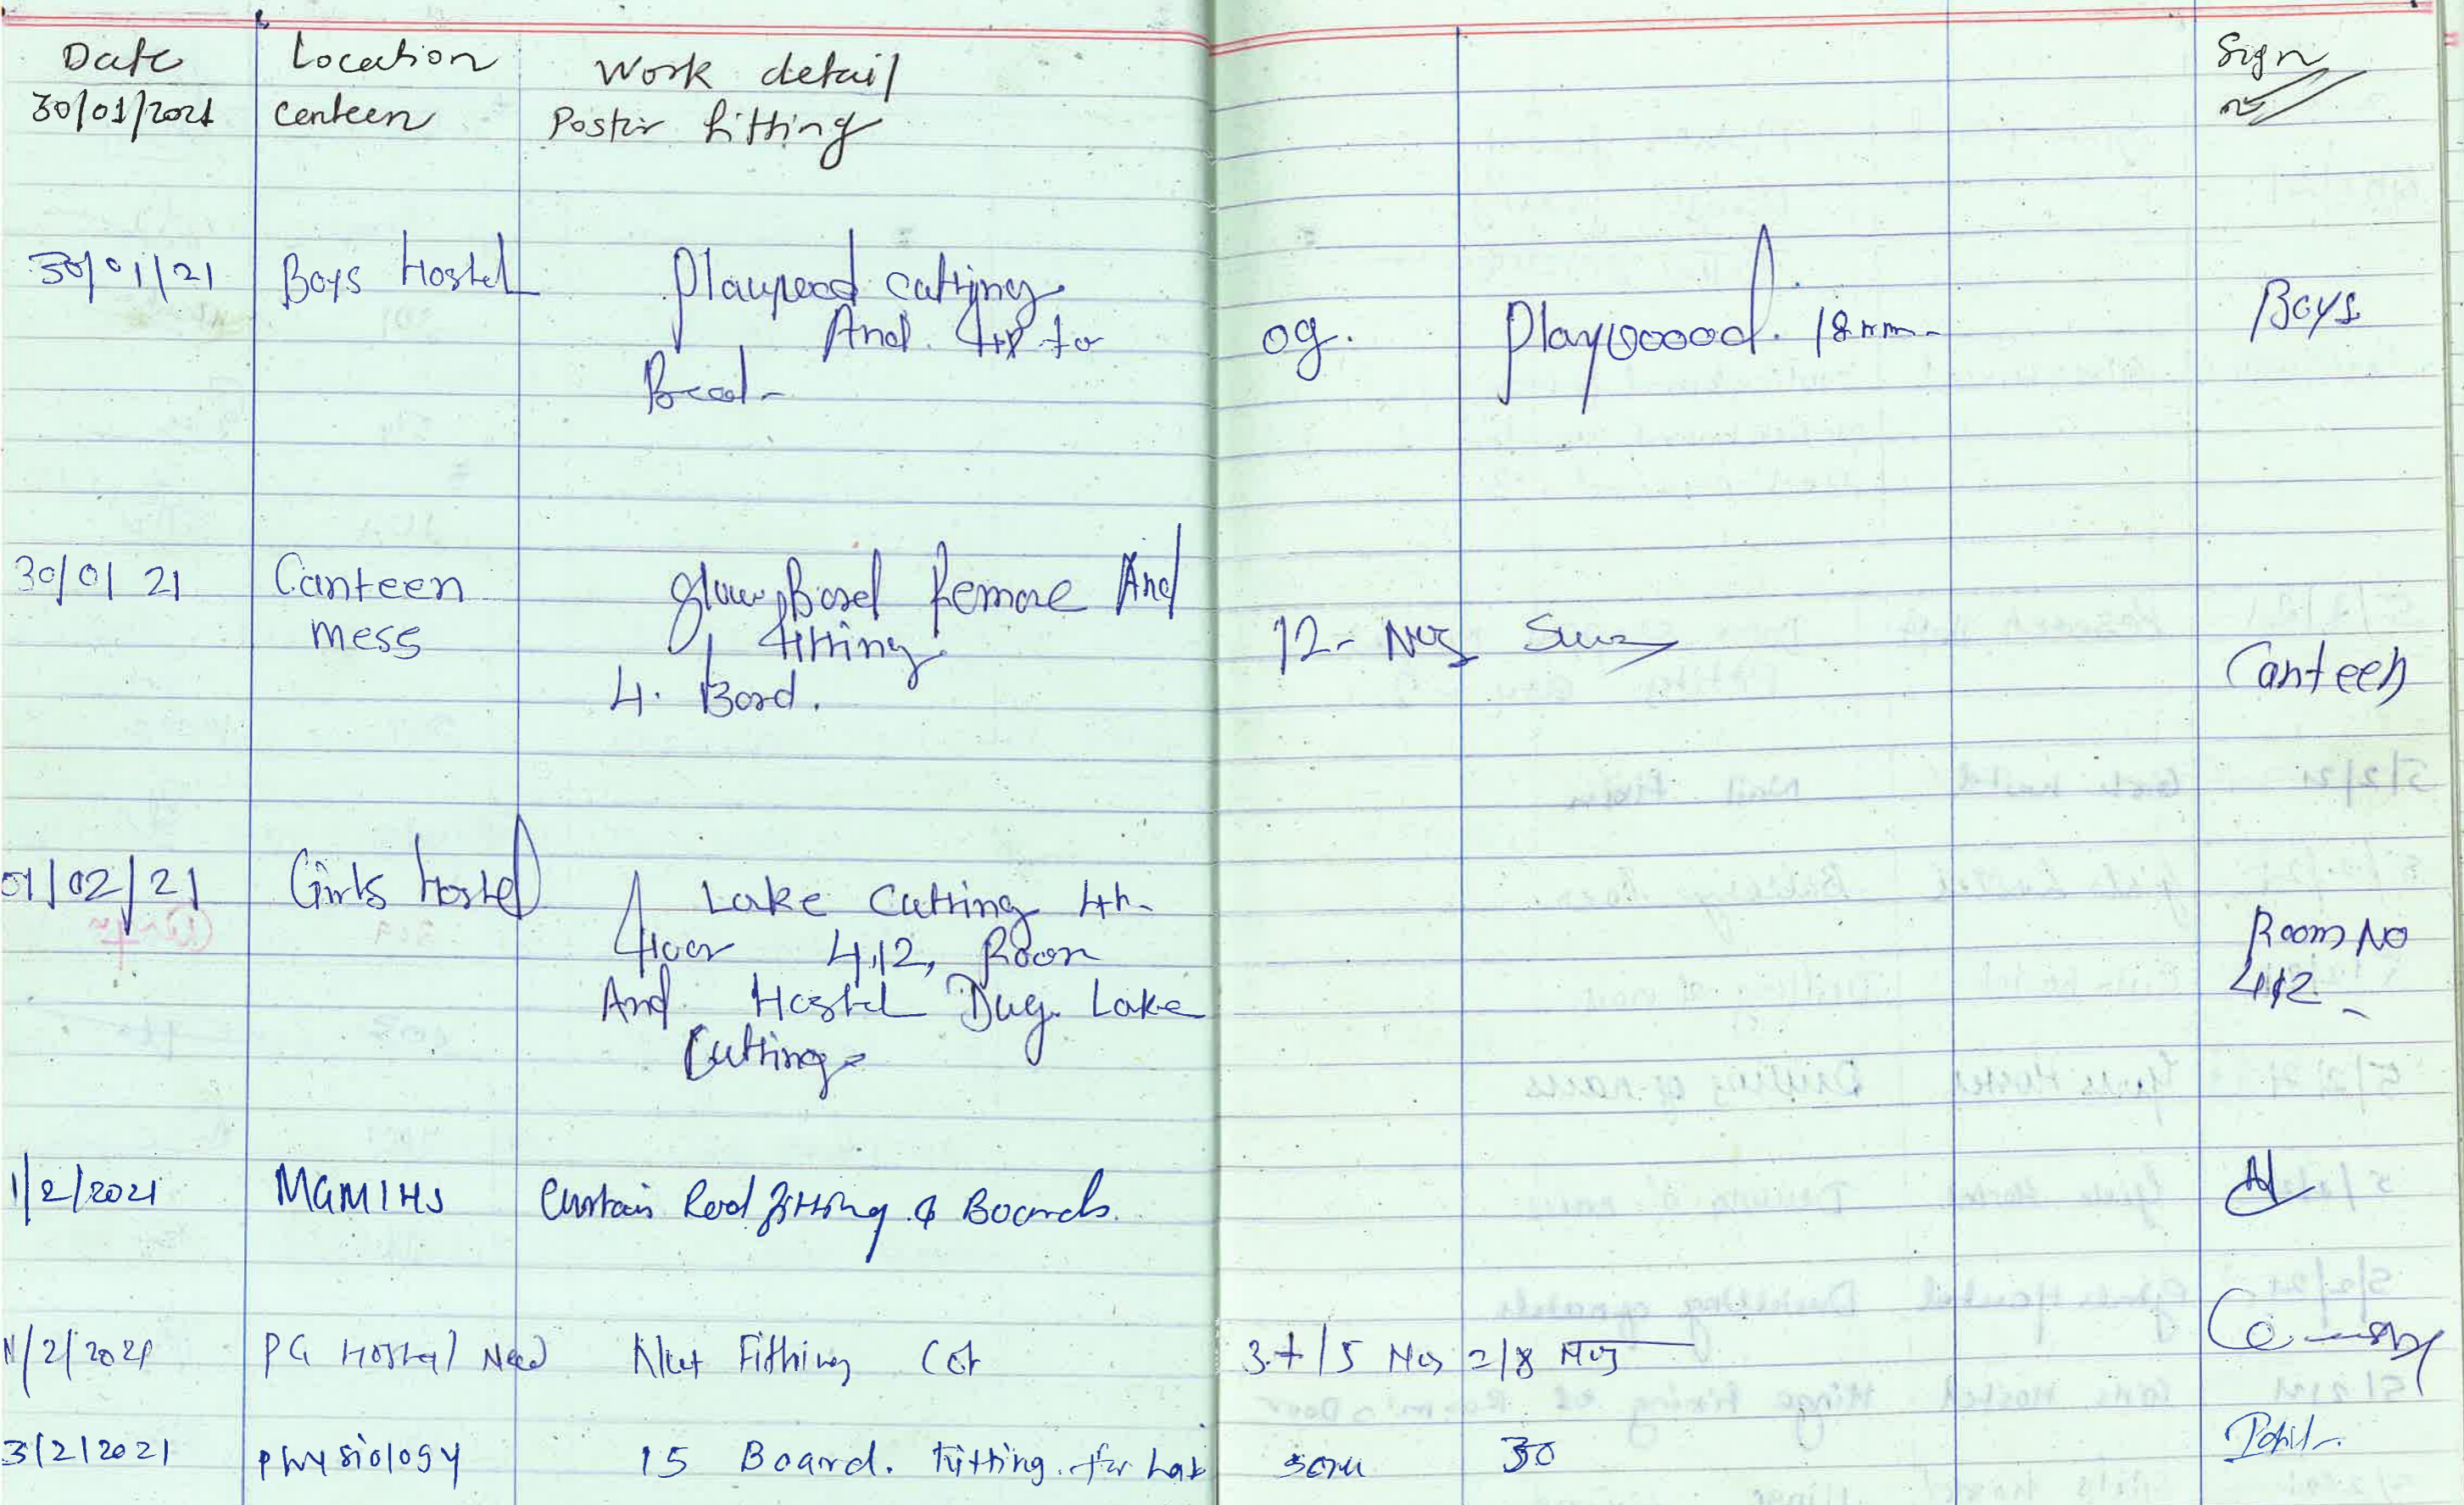 Date Location Work detail Sign
30/01/2021 Centeen Poster fitting
30/01/21 Boys Hostel Playwood cutting
And to
og. Playwoood. 18mm- Boys
30/01 21 Canteen And
mess fitting
12- Nos
4. Bord. Canteen
01/02/21 Girls Hostel Lake Cutting 4th-
floor 412, Room Room No
And Hostel Lake 412
Cutting
1/2/2021 MGMIHS Curtain Rod fitting & Boards.
1/2/2021 PG Hostel Fitting Cot 3+15 Nos 2/8 Nos
3/2/2021 Physiology 15 Board. Fitting. for Lab 30